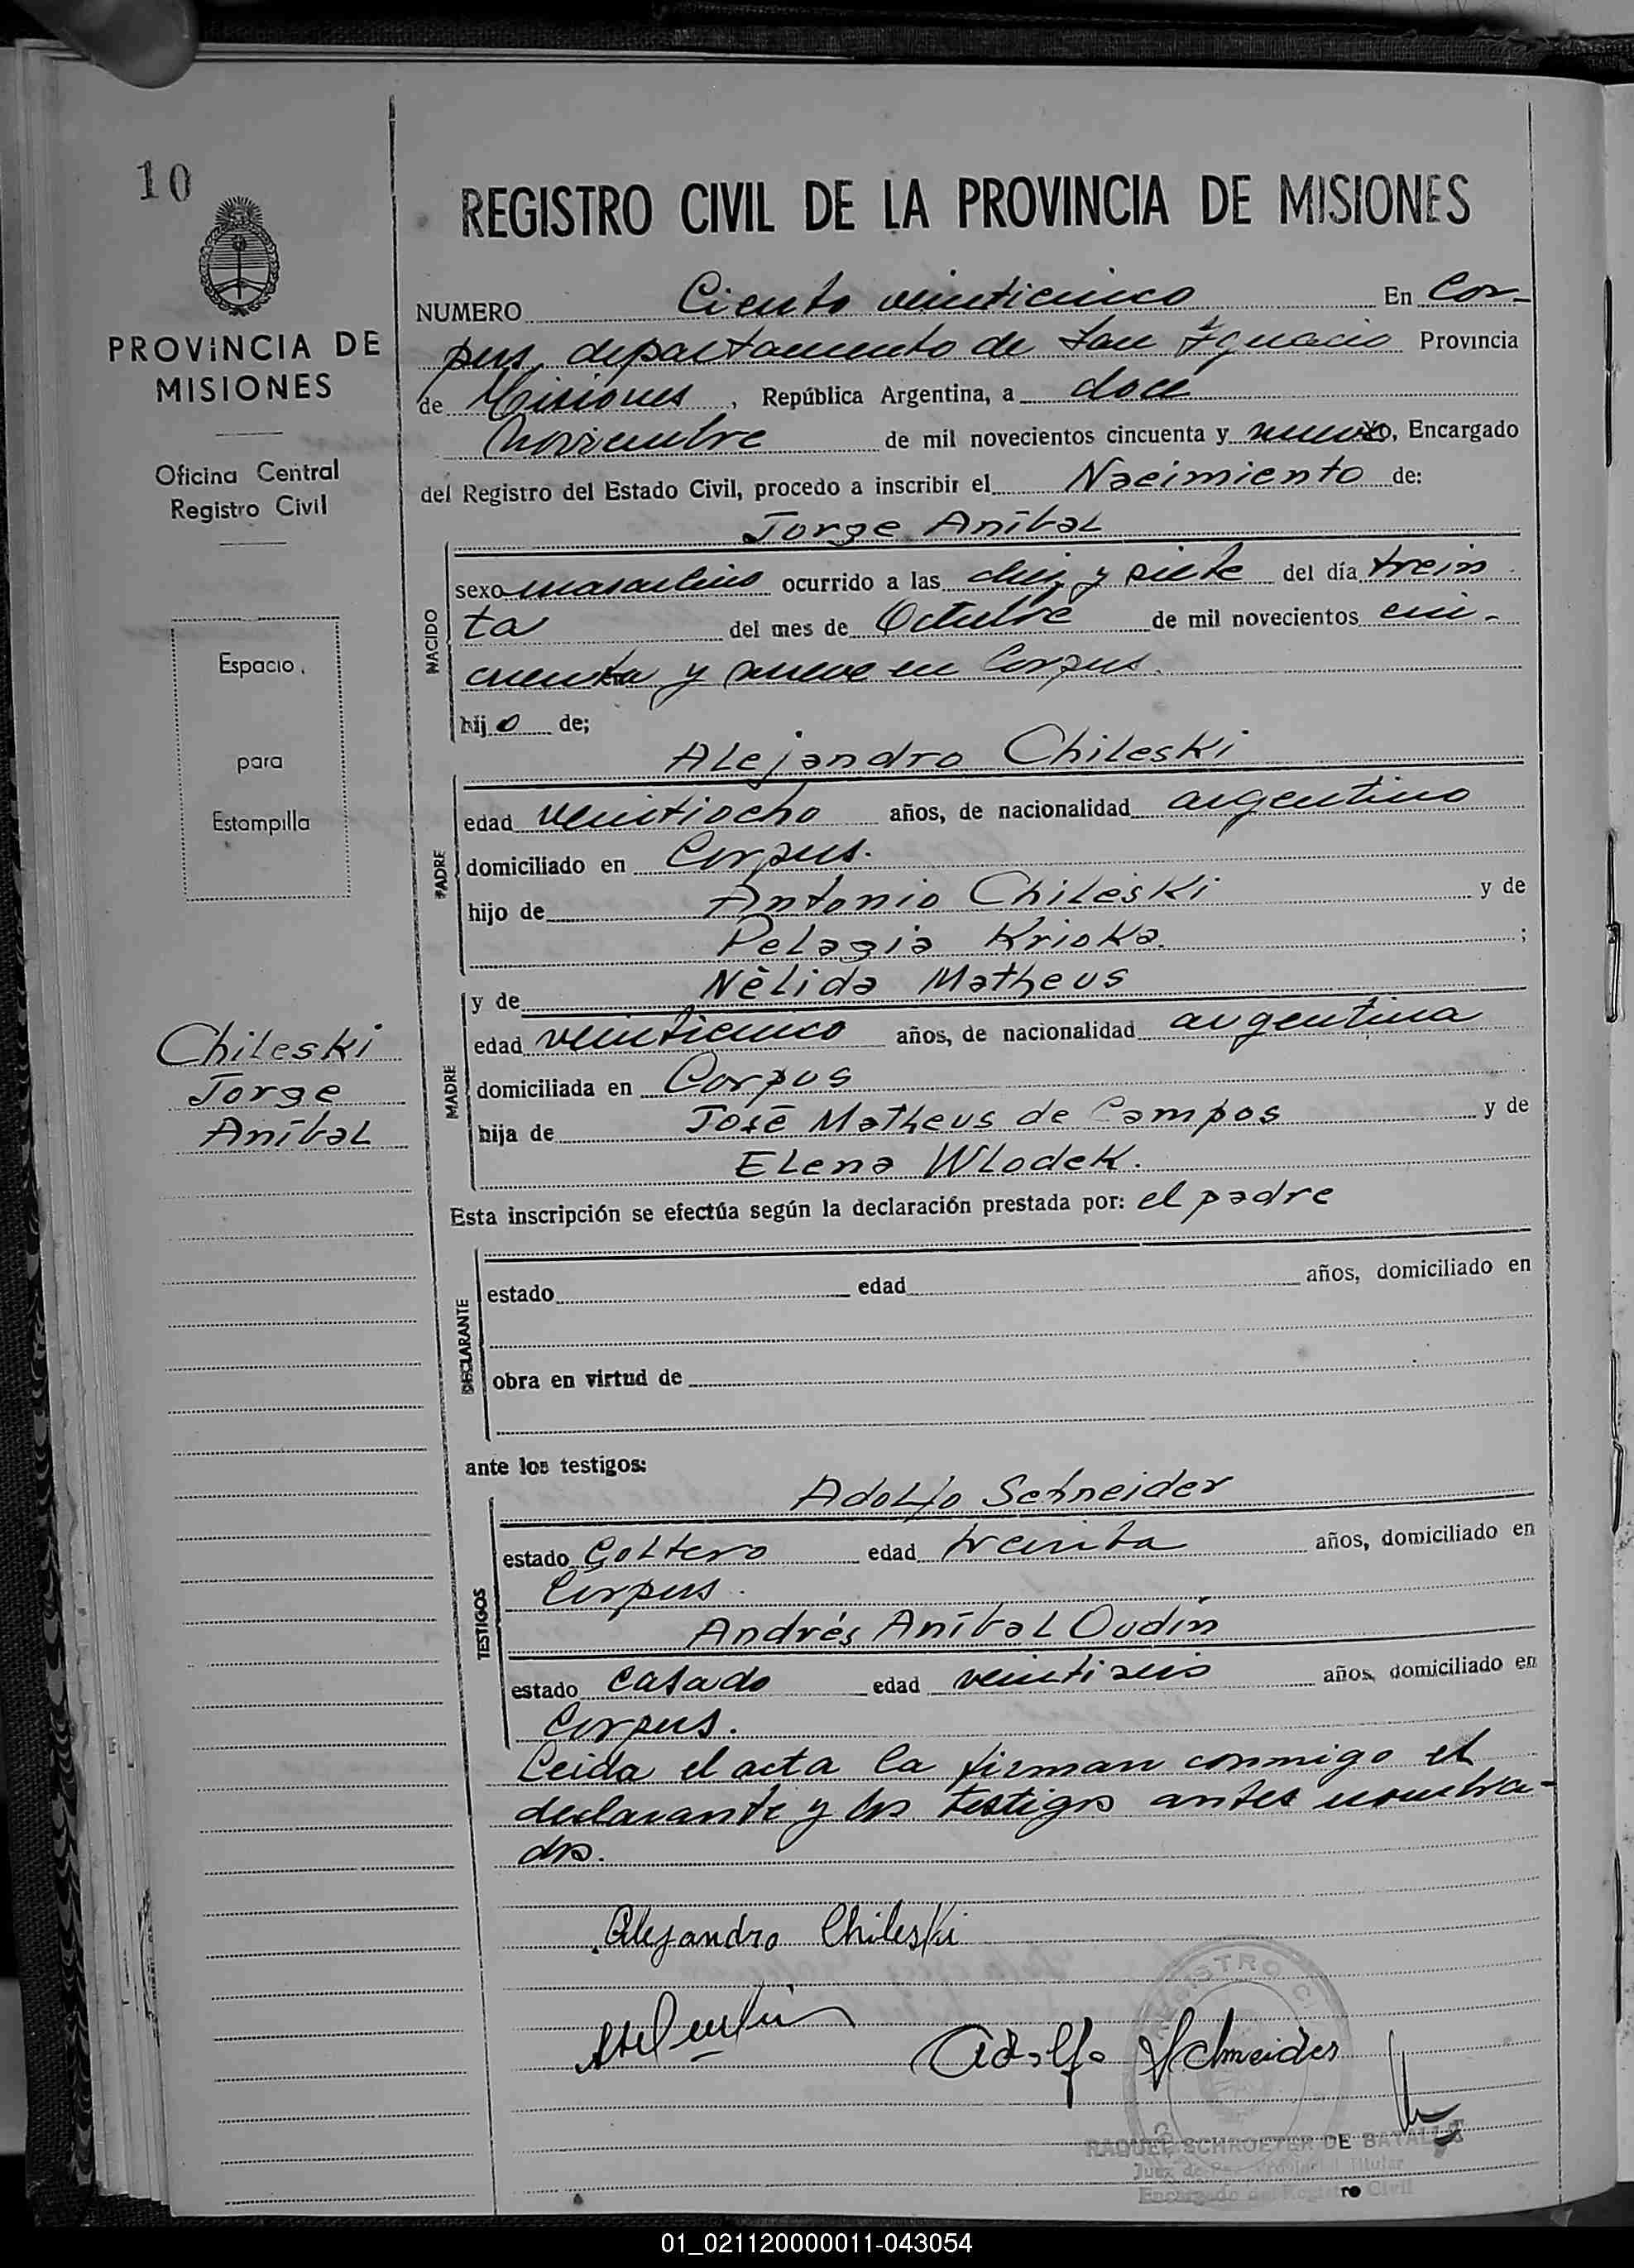 10
REGISTRO CIVIL DE LA PROVINCIA DE MISIONES
PROVINCIA DE
MISIONES
Oficina Central
Registro Civil
Espacio
para
Estampilla
Chileski
Jorge
Aníbal
NUMERO Ciento veinticinco En Cor-
pus, departamento de San Ignacio Provincia
de Misiones, República Argentina, a doce
Noviembre de mil novecientos cincuenta y nueve yo, Encargado
del Registro del Estado Civil, procedo a inscribir el Nacimiento de:
Jorge Aníbal
NACIDO
sexo masculino ocurrido a las diez y siete del día trein
ta del mes de Octubre de mil novecientos cin-
cuenta y nueve en Corpus.
hijo de;
Alejandro Chileski
PADRE
edad veintiocho años, de nacionalidad argentino
domiciliado en Corpus.
hijo de Antonio Chileski y de
Pelagia Krioka. ;
MADRE
y de Nèlida Matheus
edad veinticinco años, de nacionalidad argentina
domiciliada en Corpus
hija de José Matheus de Campos y de
Elena Wlodek.
Esta inscripción se efectúa según la declaración prestada por: el padre
DECLARANTE
estado edad años, domiciliado en
obra en virtud de
ante los testigos:
Adolfo Schneider
TESTIGOS
estado Soltero edad treinta años, domiciliado en
Corpus.
Andrés Aníbal Oudin
estado Casado edad veintiseis años, domiciliado en
Corpus.
Leida el acta la firman conmigo el
declarante y los testigos antes nombra-
dos.
Alejandro Chileski
Adolfo Schneider
REGISTRO CI
RAQUEL SCHROETER DE BATALLA
Juez de Paz Provincial Titular
Encargado del Registro Civil
01_021120000011-043054